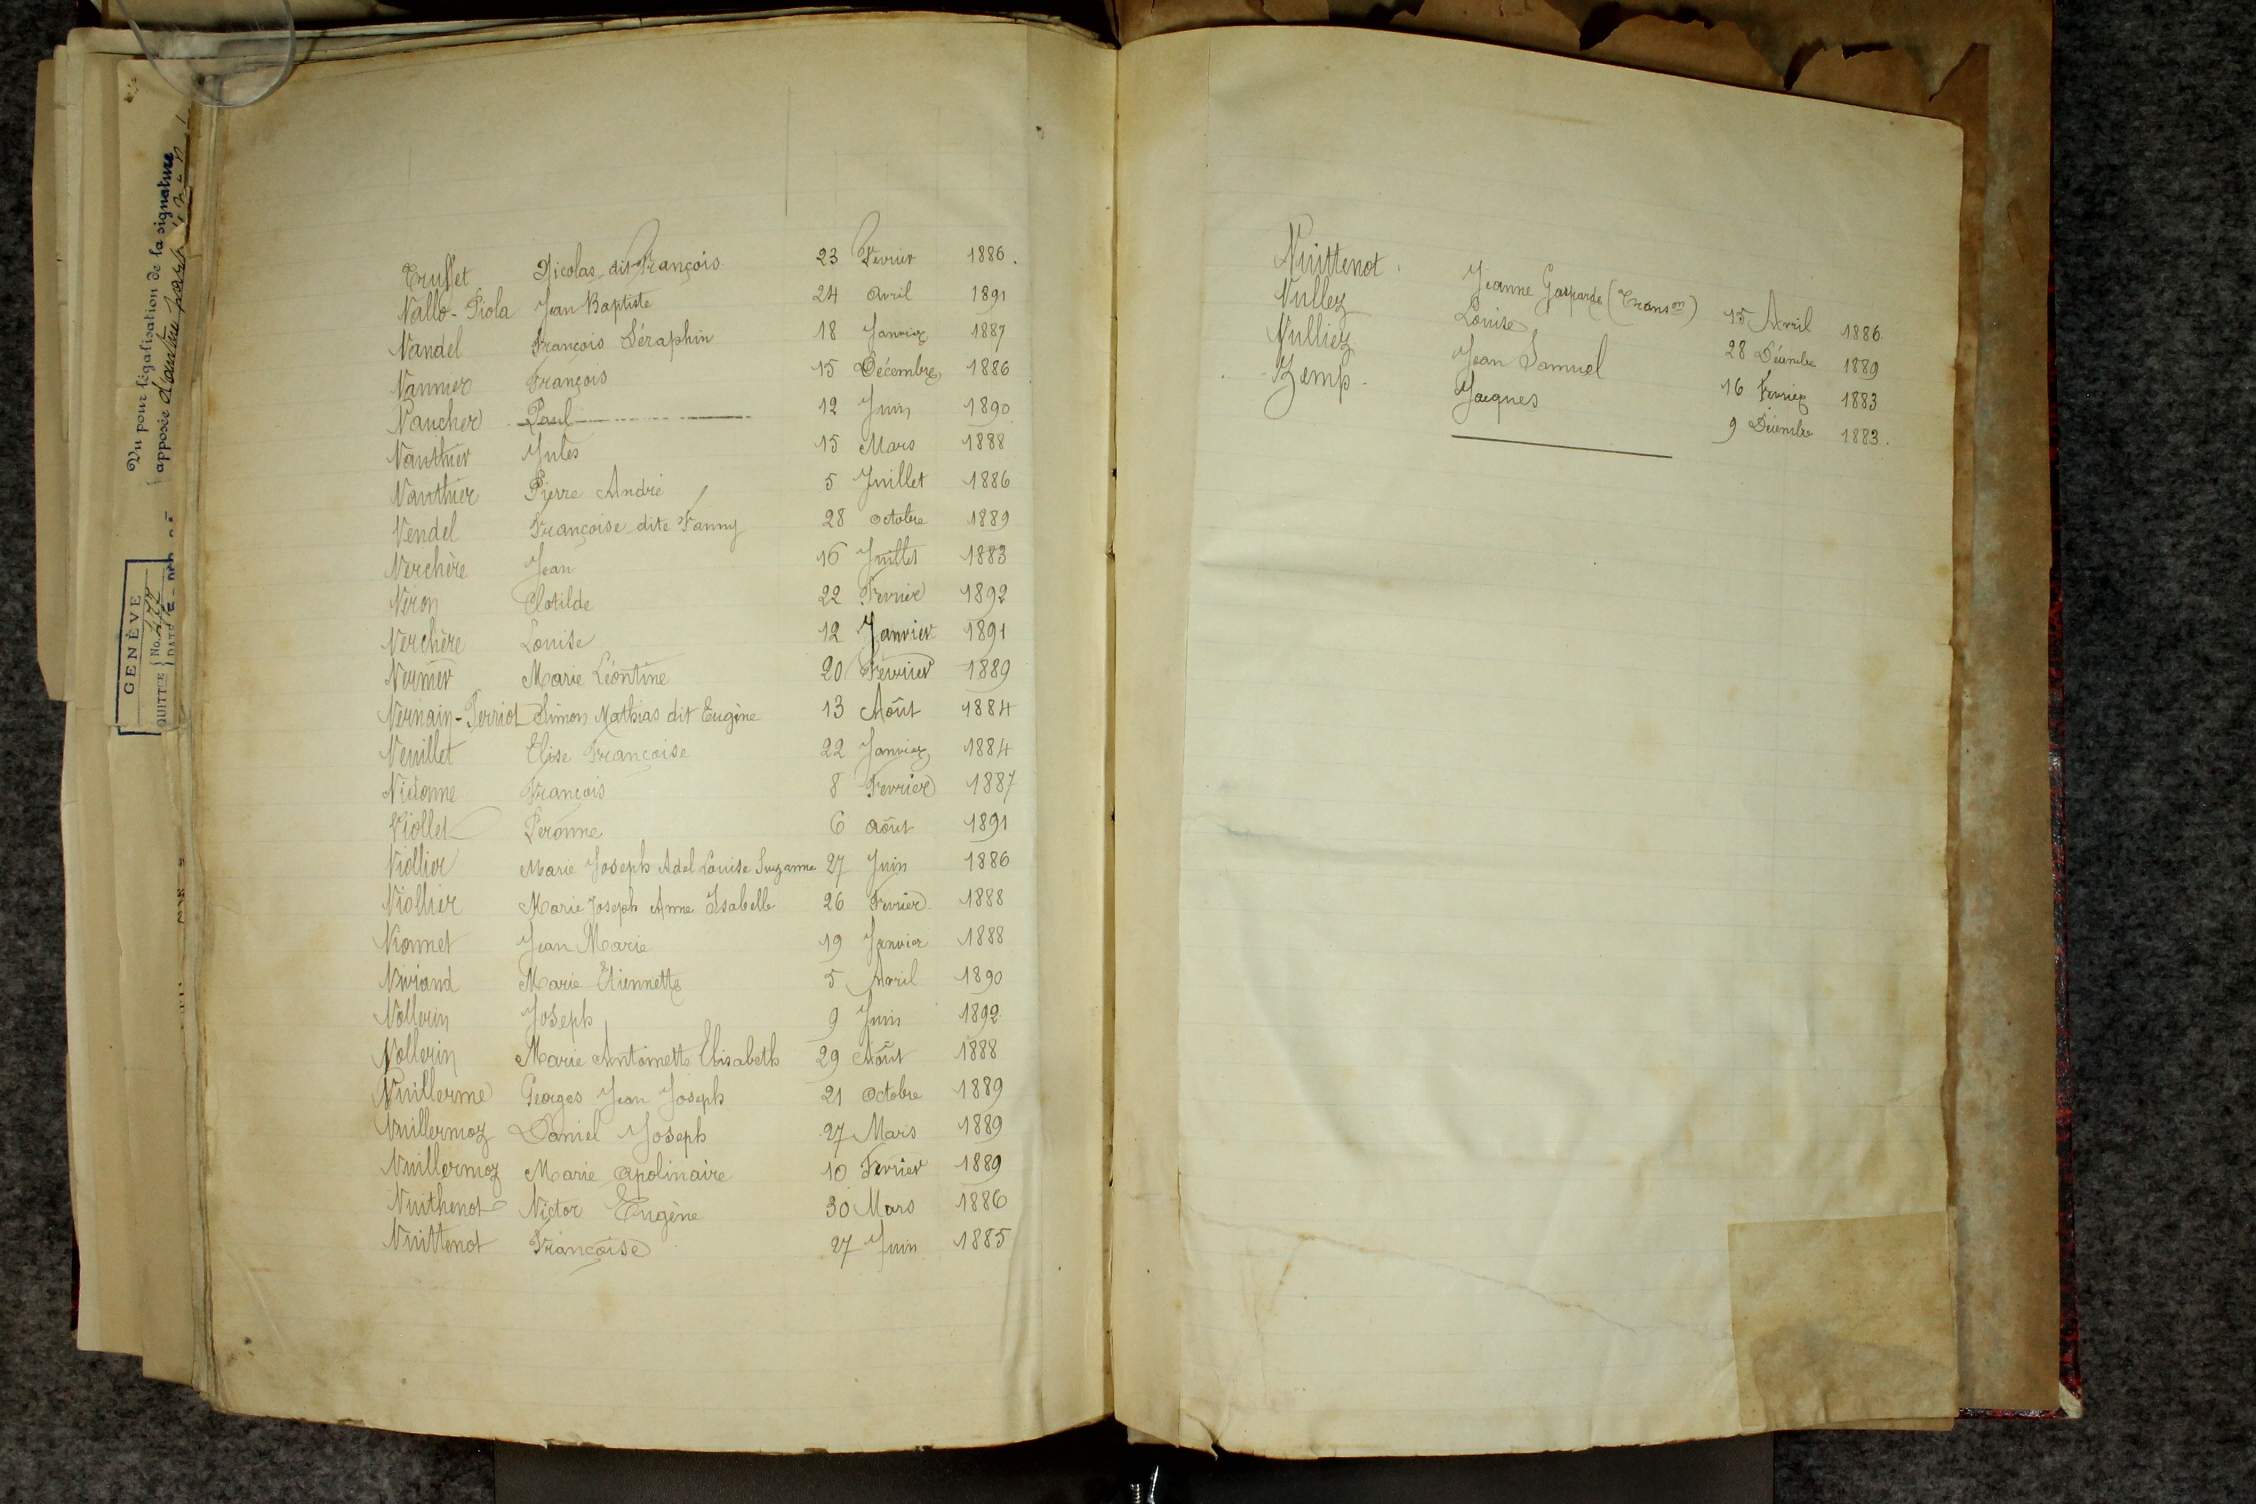 Vu pour légalisation de la signature
apposée
GENÈVE
QUITTE No.
DATE
Truffet Nicolas dit François 23 Février 1886.
Vallo-Piola Jean Baptiste 24 avril 1891
Vandel François Séraphin 18 Janvier 1887
Vannier François 15 Décembre 1886
Vaucher Paul 12 Juin 1890
Vauthier Jules 15 Mars 1888
Vauthier Pierre André 5 Juillet 1886
Vendel Françoise dite Fanny 28 octobre 1889
Verchère Jean 16 Juillet 1883
Véron Clotilde 22 Février 1892
Verchère Louise 12 Janvier 1891
Vernier Marie Léontine 20 Février 1889
Vernain-Perriot Simon Mathias dit Eugène 13 Août 1884
Veuillet Elise Françoise 22 Janvier 1884
Victonne François 8 Fevrier 1887
Viollet Peronne 6 août 1891
Viollier Marie Joseph Adel Louise Suzanne 27 Juin 1886
Viollier Marie Joseph Anne Isabelle 26 Fevrier 1888
Vionnet Jean Marie 19 Janvier 1888
Viviand Marie Etiennette 5 Avril 1890
Vollerin Joseph 9 Juin 1892
Vollerin Marie Antoinette Elisabeth 29 Août 1888
Vuillerme Georges Jean Joseph 21 octobre 1889
Vuillermoz Daniel Joseph 27 Mars 1889
Vuillermoz Marie Apolinaire 10 Fevrier 1889
Vuithenot Victor Eugène 30 Mars 1886
Vuittenot Françoise 27 Juin 1885
Vuittenot Jeanne Gasparde (Transon) 15 Avril 1886
Vullez Louise 28 Décembre 1889
Vulliez Jean Samuel 16 Fevrier 1883
Zemp Jacques 9 Décembre 1883.